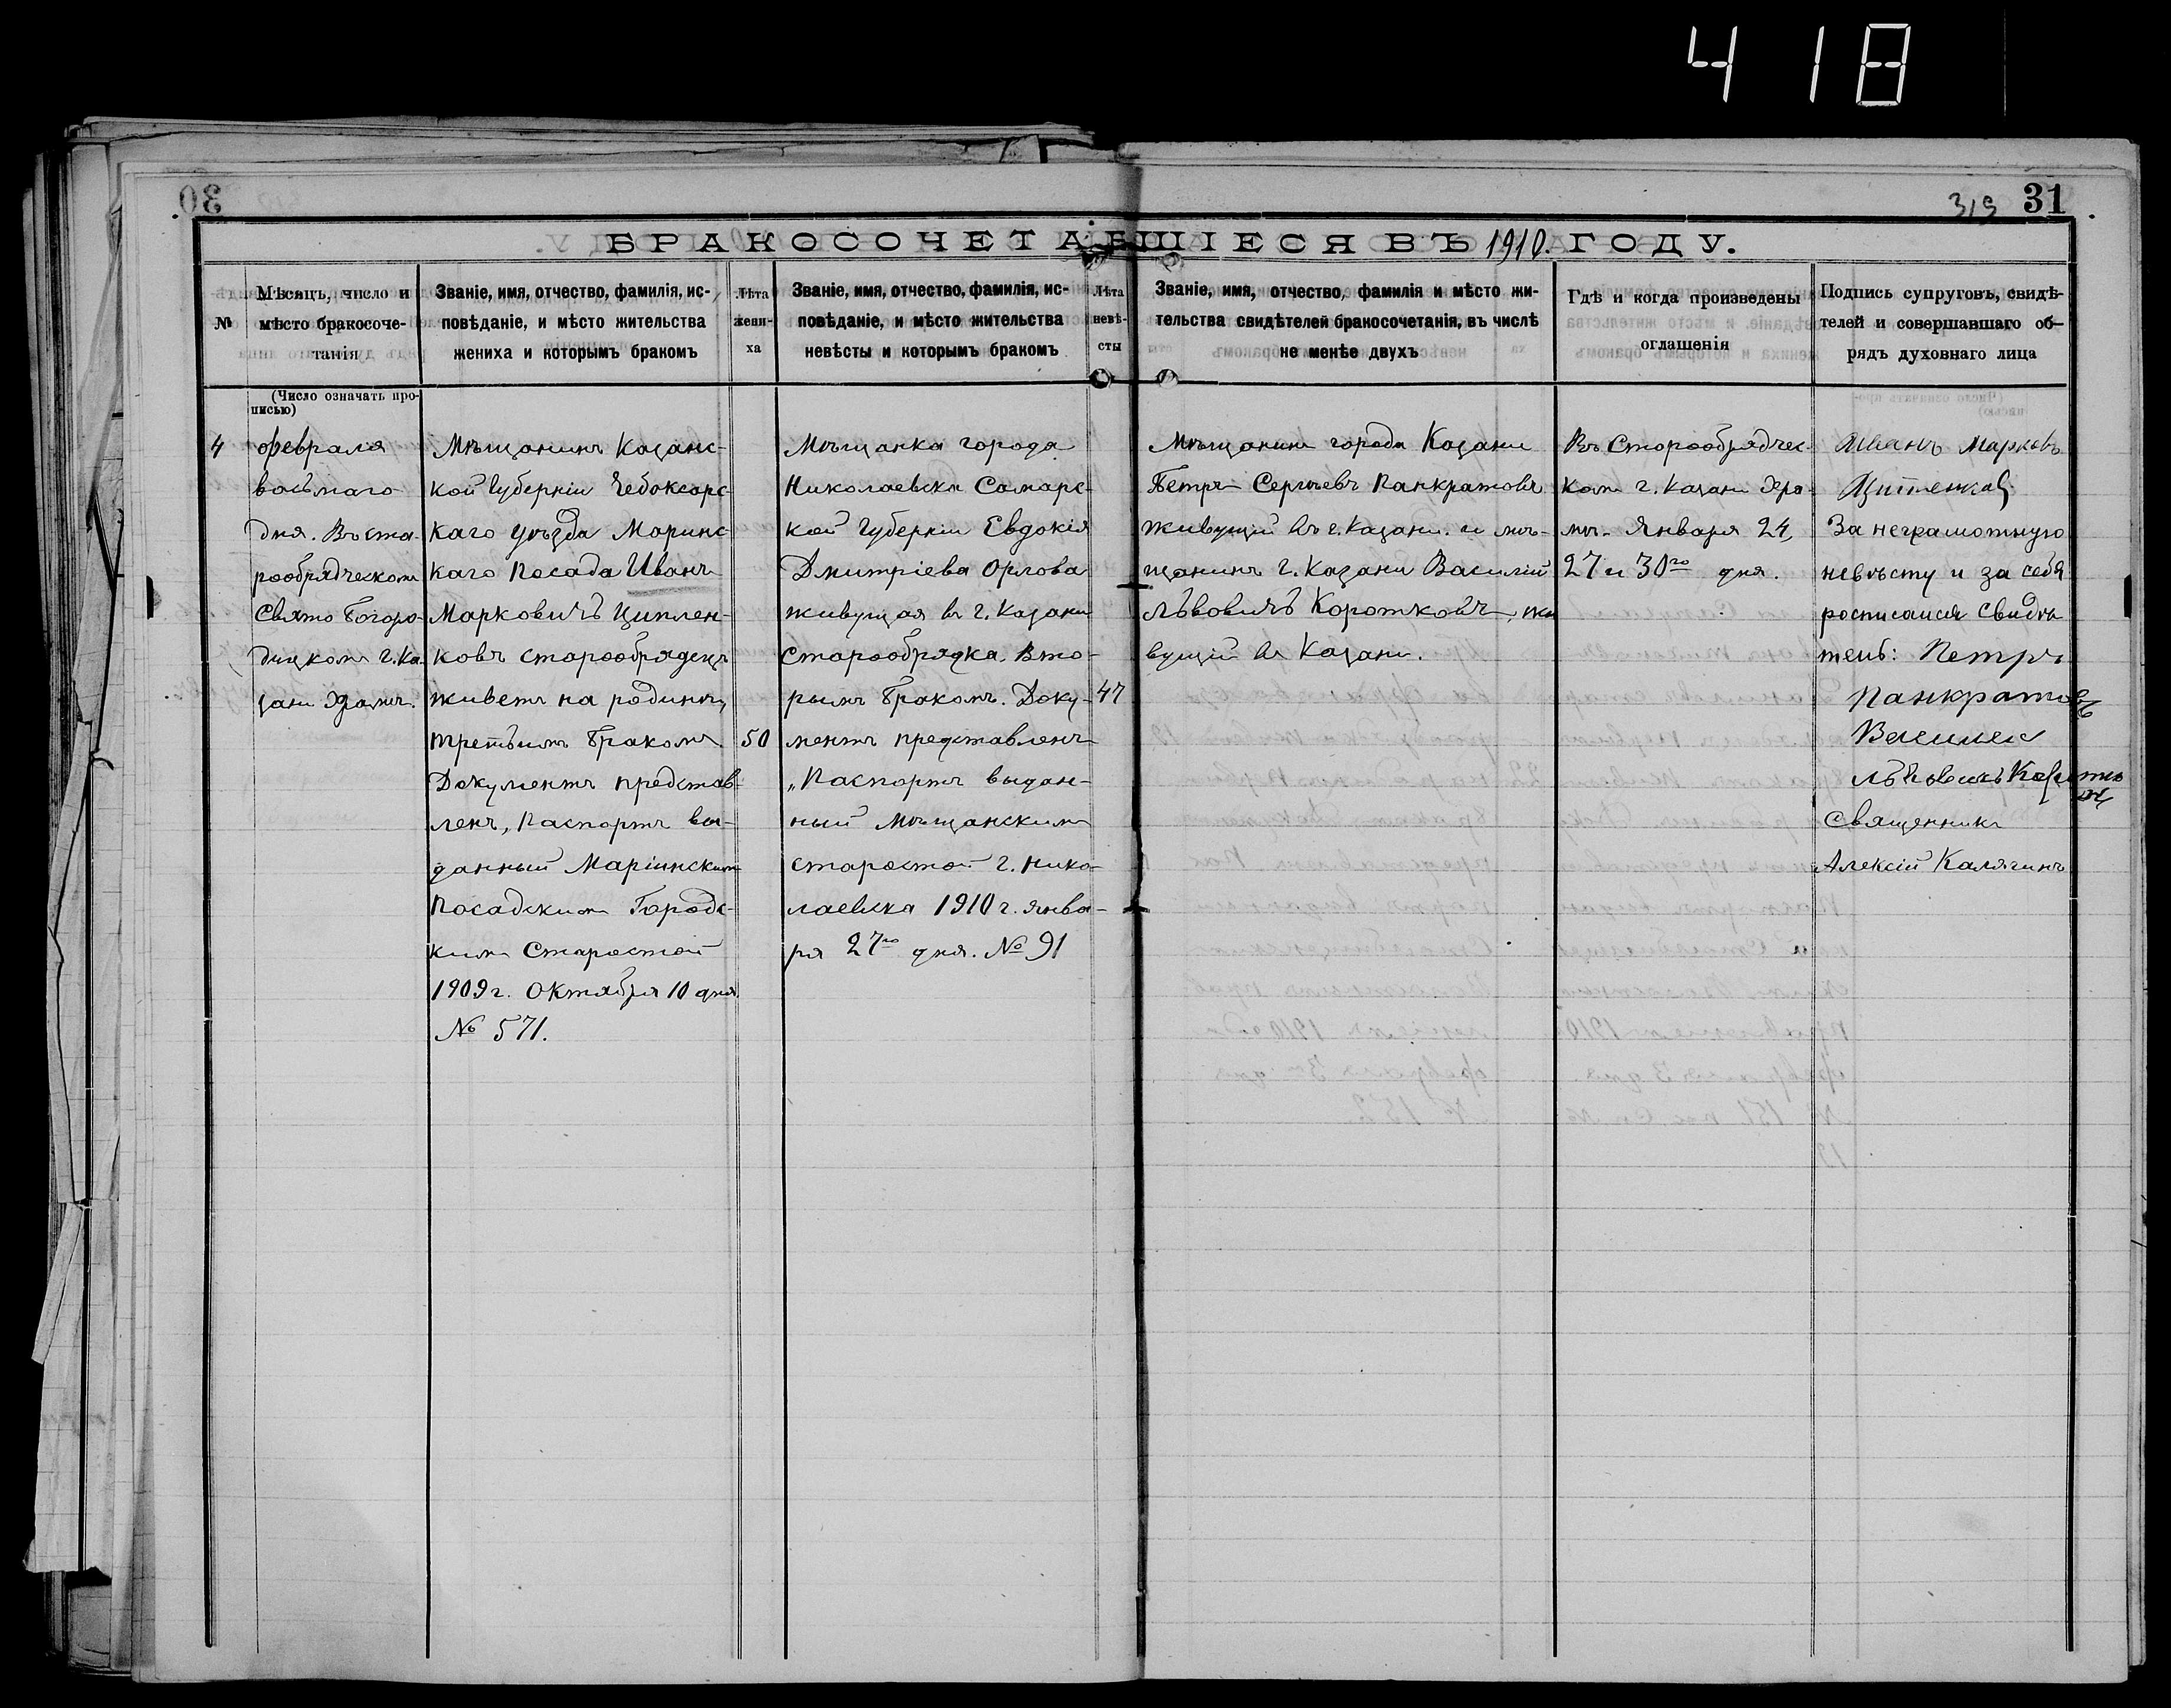 418
30
319 31
БРАКОСОЧЕТАВШІЕСЯ ВЪ 1910. ГОДУ.
№
Мѣсяцъ, число и
мѣсто бракосоче-
танія
Званіе, имя, отчество, фамилія, ис-
повѣданіе, и мѣсто жительства
жениха и которымъ бракомъ
Лѣта
жени-
ха
Званіе, имя, отчество, фамилія, ис-
повѣданіе, и мѣсто жительства
невѣсты и которымъ бракомъ
Лѣта
невѣ-
сты
Званіе, имя, отчество, фамилія и мѣсто жи-
тельства свидѣтелей бракосочетанія, въ числѣ
не менѣе двухъ
Гдѣ и когда произведены
оглашенія
Подпись супруговъ, свидѣ-
телей и совершавшаго об-
рядъ духовнаго лица
(Число означать про-
писью)
4
февраля
восьмаго
дня. Въ ста-
рообрядческом
Свято Богоро-
дицкомъ г. Ка-
зани Храмѣ.
Мѣщанинъ Казанс-
кой Губерніи Чебоксарс-
каго уѣзда Маринс-
каго Посада Иванъ
Марковичъ Циплен-
ковъ старообрядецъ
живетъ на родинѣ,
третьимъ бракомъ.
Документъ представ-
ленъ, Паспортъ вы-
данный Маріинским
Посадским Городс-
ким Старостой
1909 г. Октября 10 дня
№ 571.
50
Мѣщанка города
Николаевска Самарс-
кой Губерніи Евдокія
Дмитріева Орлова
живущая въ г. Казани
Старообрядка. Вто-
рымъ бракомъ. Доку-
ментъ представленъ
„Паспортъ выдан-
ный Мѣщанским
старостой г. Нико-
лаевска 1910 г. янва-
ря 27го дня. № 91
47
Мѣщанин города Казани
Петръ Сергѣевъ Панкратовъ
живущій въ г. Казани. и мѣ-
щанинъ г. Казани Василій
Львовичъ Коротковъ, жи
вущій въ Казани.
Въ Старообрядчес-
ком г. Казани Хра-
мѣ. Января 24,
27 и 30го дня.
Иванъ Марковъ
Ципленков
За неграмотную
невѣсту и за себя
росписался Свидѣ
тель: Петръ
Панкратовъ
Василеи
Львовичъ Коротко
въ
Священникъ
Алексій Калягинъ